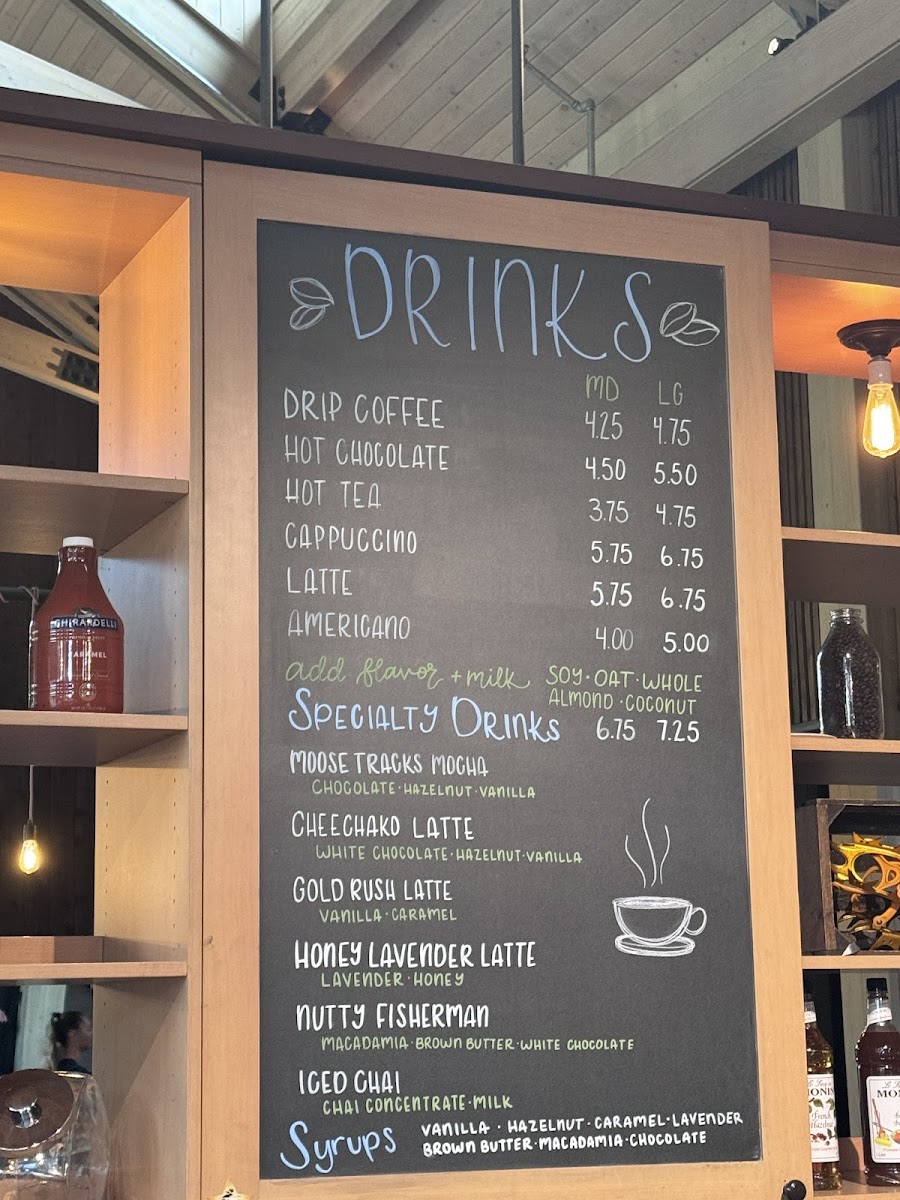 DRINKS
MD LG
DRIP COFFEE 4.25 4.75
HOT CHOCOLATE 4.50 5.50
HOT TEA 3.75 4.75
CAPPUCCINO 5.75 6.75
LATTE 5.75 6.75
AMERICANO 4.00 5.00
add flavor + milk SOY · OAT · WHOLE
ALMOND · COCONUT
SPECIALTY DRINKS 6.75 7.25
MOOSE TRACKS MOCHA
CHOCOLATE · HAZELNUT · VANILLA
CHEECHAKO LATTE
WHITE CHOCOLATE · HAZELNUT · VANILLA
GOLD RUSH LATTE
VANILLA · CARAMEL
HONEY LAVENDER LATTE
LAVENDER · HONEY
NUTTY FISHERMAN
MACADAMIA · BROWN BUTTER · WHITE CHOCOLATE
ICED CHAI
CHAI CONCENTRATE · MILK
Syrups VANILLA · HAZELNUT · CARAMEL · LAVENDER
BROWN BUTTER · MACADAMIA · CHOCOLATE
GHIRARDELLI
CARAMEL
MONIN
French
Hazelnut